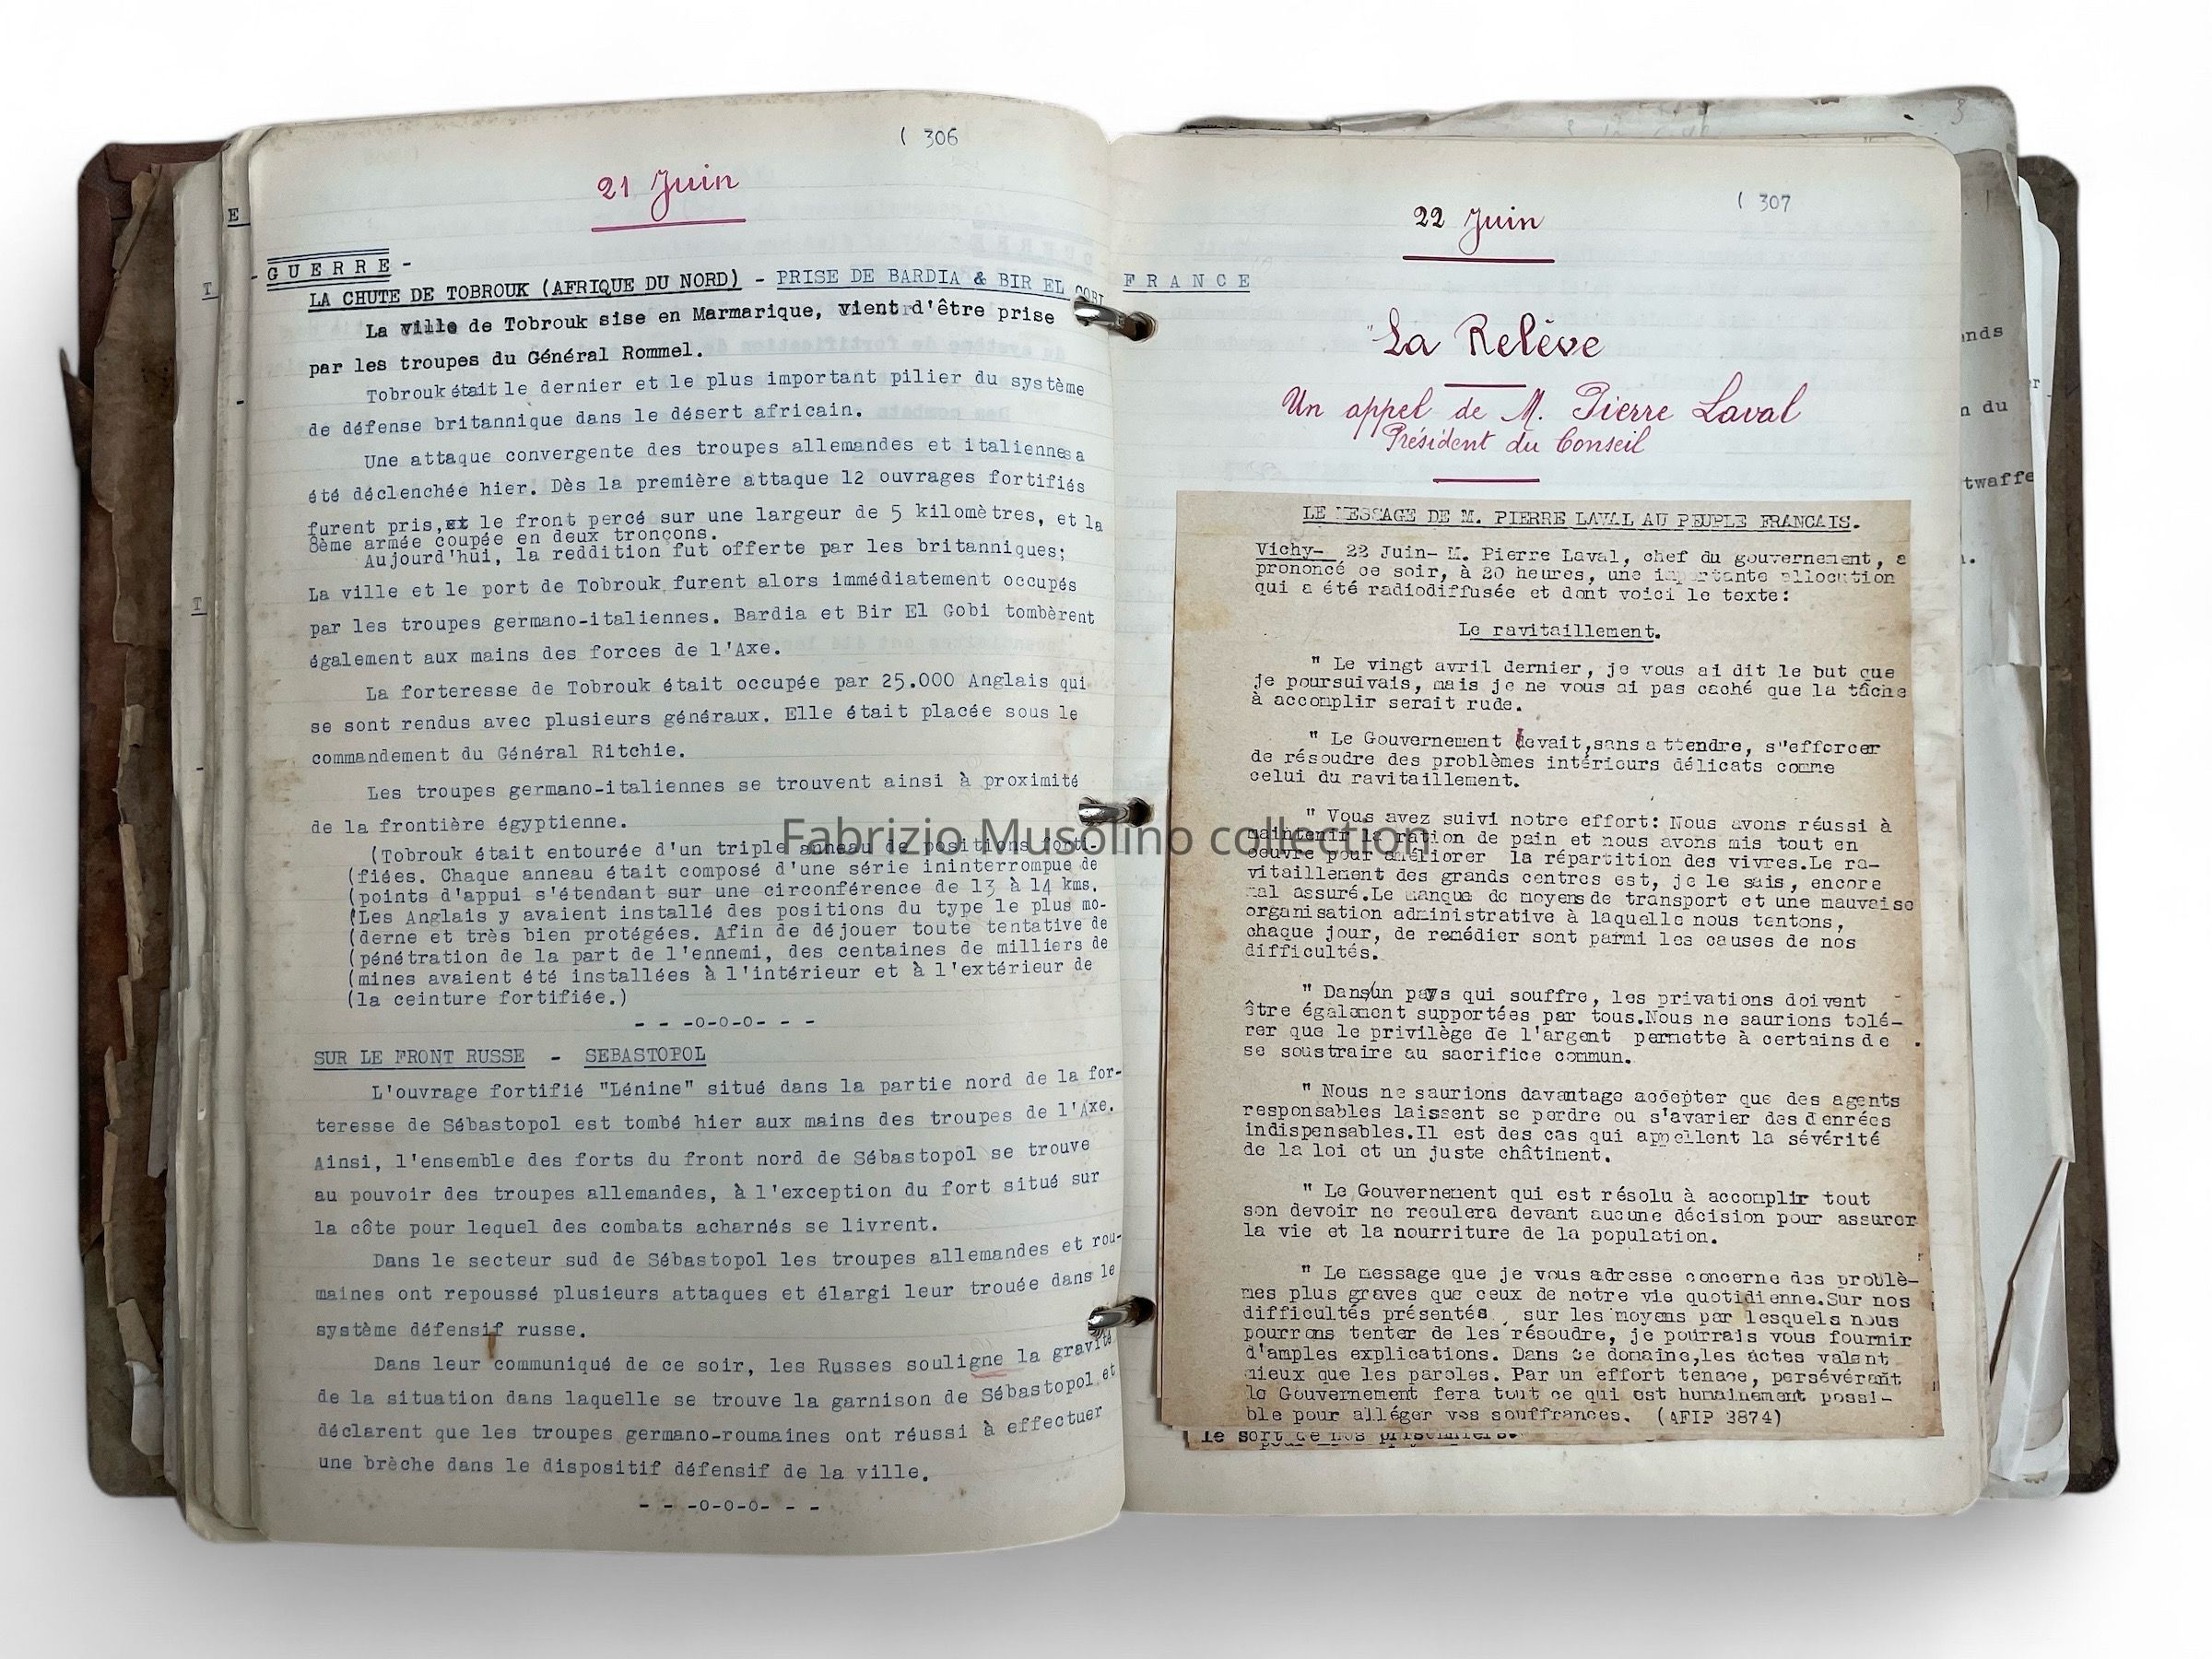 ( 306
21 Juin
- G U E R R E -
LA CHUTE DE TOBROUK (AFRIQUE DU NORD) - PRISE DE BARDIA & BIR EL GOBI
La ville de Tobrouk sise en Marmarique, vient d'être prise
par les troupes du Général Rommel.
Tobrouk était le dernier et le plus important pilier du système
de défense britannique dans le désert africain.
Une attaque convergente des troupes allemandes et italiennes a
été déclenchée hier. Dès la première attaque 12 ouvrages fortifiés
furent pris, et le front percé sur une largeur de 5 kilomètres, et la
8ème armée coupée en deux tronçons.
Aujourd'hui, la reddition fut offerte par les britanniques;
La ville et le port de Tobrouk furent alors immédiatement occupés
par les troupes germano-italiennes. Bardia et Bir El Gobi tombèrent
également aux mains des forces de l'Axe.
La forteresse de Tobrouk était occupée par 25.000 Anglais qui
se sont rendus avec plusieurs généraux. Elle était placée sous le
commandement du Général Ritchie.
Les troupes germano-italiennes se trouvent ainsi à proximité
de la frontière égyptienne.
(Tobrouk était entourée d'un triple anneau de positions forti-
(fiées. Chaque anneau était composé d'une série ininterrompue de
(points d'appui s'étendant sur une circonférence de 13 à 14 kms.
(Les Anglais y avaient installé des positions du type le plus mo-
(derne et très bien protégées. Afin de déjouer toute tentative de
(pénétration de la part de l'ennemi, des centaines de milliers de
(mines avaient été installées à l'intérieur et à l'extérieur de
(la ceinture fortifiée.)
- - -o-o-o- - -
SUR LE FRONT RUSSE - SEBASTOPOL
L'ouvrage fortifié "Lénine" situé dans la partie nord de la for-
teresse de Sébastopol est tombé hier aux mains des troupes de l'Axe.
Ainsi, l'ensemble des forts du front nord de Sébastopol se trouve
au pouvoir des troupes allemandes, à l'exception du fort situé sur
la côte pour lequel des combats acharnés se livrent.
Dans le secteur sud de Sébastopol les troupes allemandes et rou-
maines ont repoussé plusieurs attaques et élargi leur trouée dans le
système défensif russe.
Dans leur communiqué de ce soir, les Russes souligne la gravité
de la situation dans laquelle se trouve la garnison de Sébastopol et
déclarent que les troupes germano-roumaines ont réussi à effectuer
une brèche dans le dispositif défensif de la ville.
- - -o-o-o- - -
( 307
22 Juin
F R A N C E
"La Relève
Un appel de M. Pierre Laval
Président du Conseil
LE MESSAGE DE M. PIERRE LAVAL AU PEUPLE FRANCAIS.
Vichy- 22 Juin- M. Pierre Laval, chef du gouvernement, a
prononcé ce soir, à 20 heures, une importante allocution
qui a été radiodiffusée et dont voici le texte:
Le ravitaillement.
" Le vingt avril dernier, je vous ai dit le but que
je poursuivais, mais je ne vous ai pas caché que la tâche
à accomplir serait rude.
" Le Gouvernement devait,sans a ttendre, s"efforcer
de résoudre des problèmes intérieurs délicats comme
celui du ravitaillement.
" Vous avez suivi notre effort: Nous avons réussi à
maintenir la ration de pain et nous avons mis tout en
oeuvre pour améliorer la répartition des vivres.Le ra-
vitaillement des grands centres est, je le sais, encore
mal assuré.Le manque de moyens de transport et une mauvaise
organisation administrative à laquelle nous tentons,
chaque jour, de remédier sont parmi les causes de nos
difficultés.
" Dans/un pays qui souffre, les privations doivent
être également supportées par tous.Nous ne saurions tolé-
rer que le privilège de l'argent permette à certains de
se soustraire au sacrifice commun.
" Nous ne saurions davantage accepter que des agents
responsables laissent se perdre ou s'avarier des denrées
indispensables.Il est des cas qui appellent la sévérité
de la loi et un juste châtiment.
" Le Gouvernement qui est résolu à accomplir tout
son devoir ne reculera devant aucune décision pour assurer
la vie et la nourriture de la population.
" Le message que je vous adresse concerne des problè-
mes plus graves que ceux de notre vie quotidienne.Sur nos
difficultés présentes , sur les moyens par lesquels nous
pourrons tenter de les résoudre, je pourrais vous fournir
d'amples explications. Dans ce domaine,les actes valent
mieux que les paroles. Par un effort tenace, persévérant
le Gouvernement fera tout ce qui est humainement possi-
ble pour alléger vos souffrances. (AFIP 3874)
le sort de nos prisonniers.
E
T
T
nds
n du
twaffe
Fabrizio Musolino collection